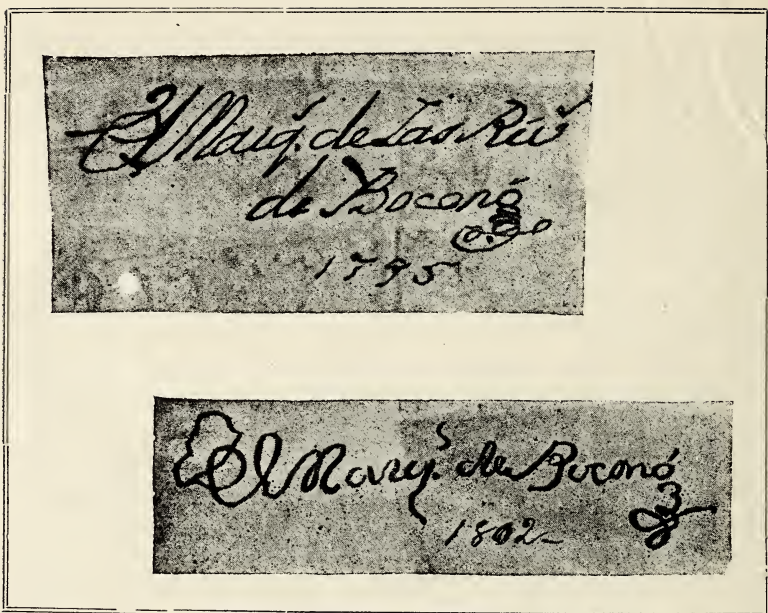 El Marq.s de las Riv.s
de Boconó
1795
El Marq.s de Boconó
1802